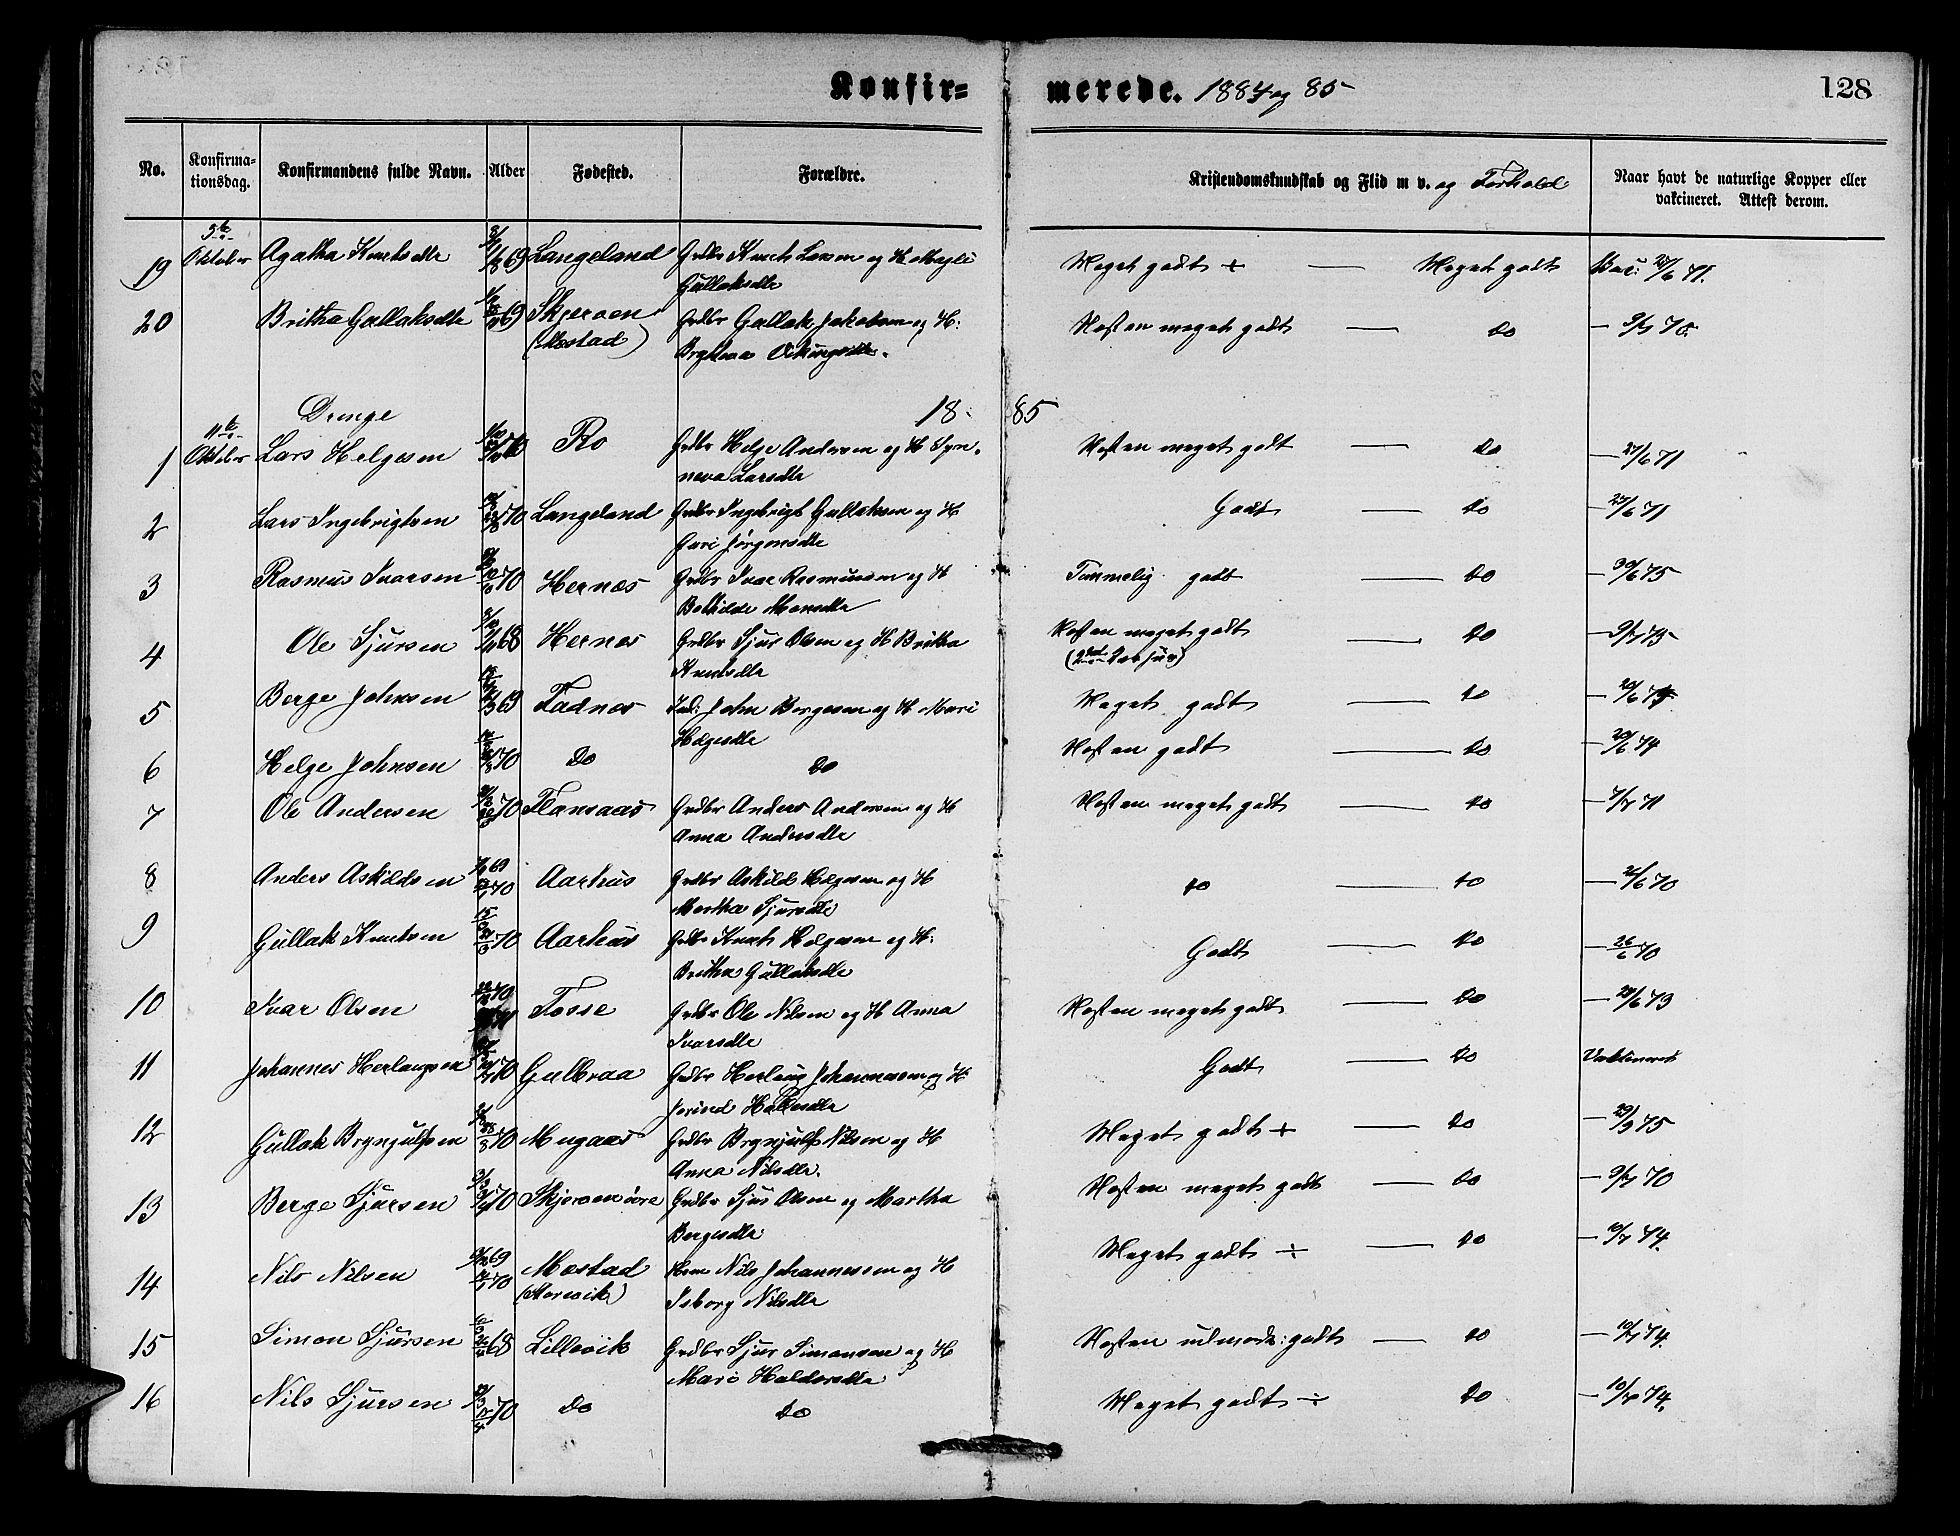 Konfir-
merede. 1884 og 85
128
No.
Konfirma-
tionsdag.
Konfirmandens fulde Navn.
Alder
Fødested.
Forældre.
Kristendomskundskab og Flid m v. og Forhold
Naar havt de naturlige Kopper eller
vakcineret. Attest derom.
5te
19 Oktober Agatha Knutsdtr 69 Langeland Grdbr Knut Larsen og H
Gullaksdtr
Meget godt + — Meget godt Vac:
20 Britha Gullaksdtr 69 Skjerven Grdbr Gullak Jakobsen og H:
(Mostad) Brytheva Vikingsdtr.
Næsten meget godt — do — 9/7 70.
Drenge
18 85
11te
1 Oktober Lars Helgesen 70 Ro Grdbr Helge Andersen og H Syn-
neva Larsdtr
Næsten meget godt — do — 27/6 71
2 Lars Ingebrigtsen 70 Langeland Grdbr Ingebrigt Gullaksen og H
Guri Jørgensdtr
Godt — do — 27/6 71
3 Rasmus Ivarsen 70 Hernes Grdbr Ivar Rasmussen og H
Bothilde Monsdtr
Temmelig godt — do — 30/6 75
4 Ole Sjursen 68 Hernes Grdbr Sjur Olsen og H Britha
Knutsdtr
Næsten meget godt — do — 9/7 75
5 Berge Johnsen 69 Fadnes Ind: John Bergesen og H Mari
Helgesdtr
Meget godt — do
6 Helge Johnsen 70 do do
Næsten godt — do — 29/6 74
7 Ole Andersen 70 Flansaas Grdbr Anders Andersen og H
Anna Andersdtr
Næsten meget godt — do — 7/7 71
8 Anders Askildsen 69 70 Aarhus Grdbr Askild Helgesen og H
Martha Sjursdtr
do — do — 26/6 70
9 Gullak Knutsen 70 Aarhus Grdbr Knut Helgesen og H:
Britha Gullaksdtr
Godt — do — 26/6 70
10 Ivar Olsen 70 Fosse Grdbr Ole Nilsen og H Anna
Ivarsdtr
Næsten meget godt — do — 29/6 73
11 Johannes Herlaugsen 70 Gulbraa Grdbr Herlaug Johannessen og H
Jorind Hallesdtr
Godt — do Vakcineret
12 Gullak Brynjulfsen 70 Mugaas Grdbr Brynjulf Nilsen og H
Anna Nilsdtr.
Meget godt + — do — 29/9 75
13 Berge Sjursen 70 Skjerven øvre Grdbr Sjur Olsen og Martha
Bergesdtr
Næsten meget godt — do — 9/7 70
14 Nils Nilsen 69 70 Mostad Nils Johannessen og H
(Storevik) Isborg Nilsdtr
Meget godt ÷ — do — 10/7 74.
15 Simon Sjursen 68 Lillevik Grdbr Sjur Simonsen og H
Mari Haldorsdtr
Næsten udmærk: godt — do — 10/7 74.
16 Nils Sjursen 70 do do
Meget godt ÷ do — 10/7 74.